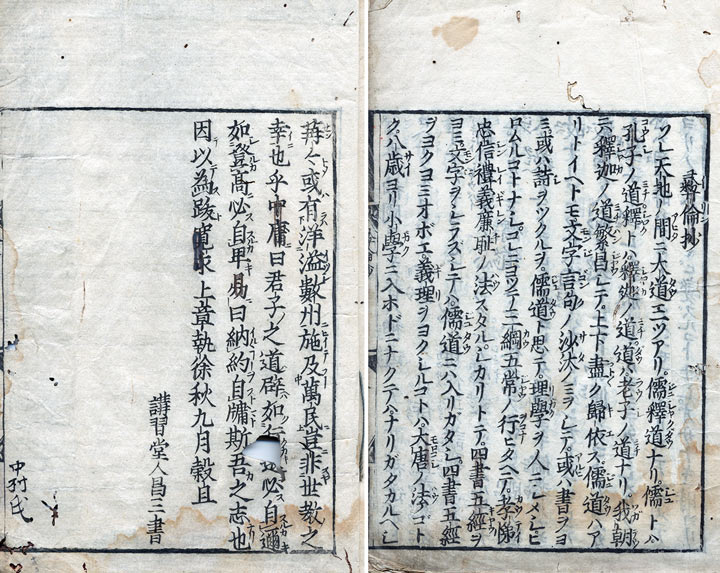 彝倫抄
ソレ天地ノ間ニ大道三ツアリ。儒釋道ナリ。儒トハ
孔子ノ道釋トハ釋迦ノ道道トハ老子ノ道ナリ。我朝
ニ釋迦ノ道繁昌シテ。上下盡ク歸依ス。儒道ハア
リトイヘトモ。文字言句ノ沙汰ノミヲシテ。或ハ書ヲヨ
ミ或ハ詩ヲツクルヲ。儒道ト思テ。理學ヲ人ニシメシヒ
ロムルコトナシ。コレニヨツテ三綱五常ノ行ヒタヘテ。孝悌
忠信禮義廉耻ノ法スタル。シカリトテ。四書五經ヲ
ヨミ文字ヲシラズシテハ儒道ニハ入リガタシ。四書五經
ヲヨクヨミオボエ義理ヲヨクシルコトハ大唐ノ法ノゴト
ク八歳ヨリ小學ニ入ホドニナクテハナリガタカルヘシ
苒々或有洋溢數州施及萬民豈非世教之
幸也乎中庸曰君子之道辟如行 必自邇
如登髙必自卑易曰納約自牖斯吾之志也
因以為跋寛永上章執徐秋九月穀旦
講習堂人昌三書
中村氏